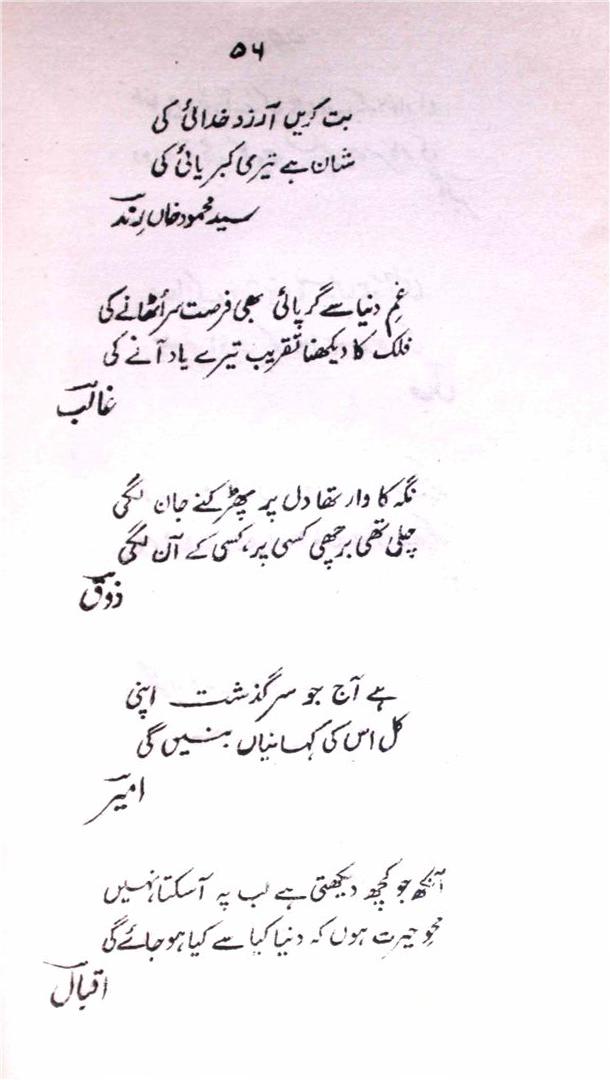 ۵۶
بت کریں آرزو خدائی کی
شان ہے تیری کبریائی کی
سید محمود خاں رند
غمِ دنیا سے گر پائی بھی فرصت سر اُٹھانے کی
فلک کا دیکھنا تقریب تیرے یاد آنے کی
غالب
نگہ کا وار تھا دل پر پھڑکنے جان لگی
چلی تھی برچھی کسی پر، کسی کے آن لگی
ذوق
ہے آج جو سرگذشت اپنی
کل اس کی کہانیاں بنیں گی
امیر
آنکھ جو کچھ دیکھتی ہے لب پہ آسکتا نہیں
محوِ حیرت ہوں کہ دنیا کیا سے کیا ہو جائے گی
اقبال